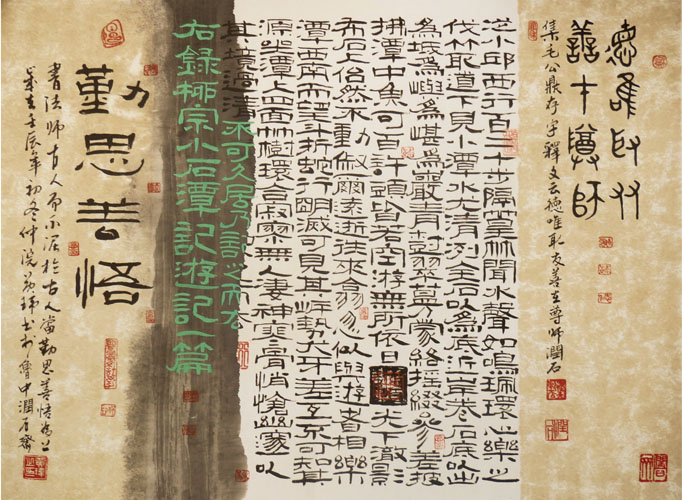 德唯取友
善才尊師
集毛公鼎存字釋文云德唯取友善在尊師潤石
從小邱西行百二十步隔篁林聞水聲如鳴珮環心樂之
伐竹取道下見小潭水尤清冽全石以為底近岸卷石底以出
為坻為嶼為嵁為巖青樹翠蔓蒙絡搖綴參差披
拂潭中魚可百許頭皆若空游無所依日光下澈影
布石上佁然不動俶爾遠逝往來翕忽似與游者相樂
潭西南而望斗折蛇行明滅可見其岸勢犬牙差互不可知其
源坐潭上四面竹樹環合寂寥無人凄神寒骨悄愴幽邃以
其境過清不可久居乃記之而去
右錄柳宗小石潭記游記一篇
勤思善悟
書法師古人而不泥於古人當勤思善悟為上
歲在壬辰年初冬仲浣 書於會中潤石齋